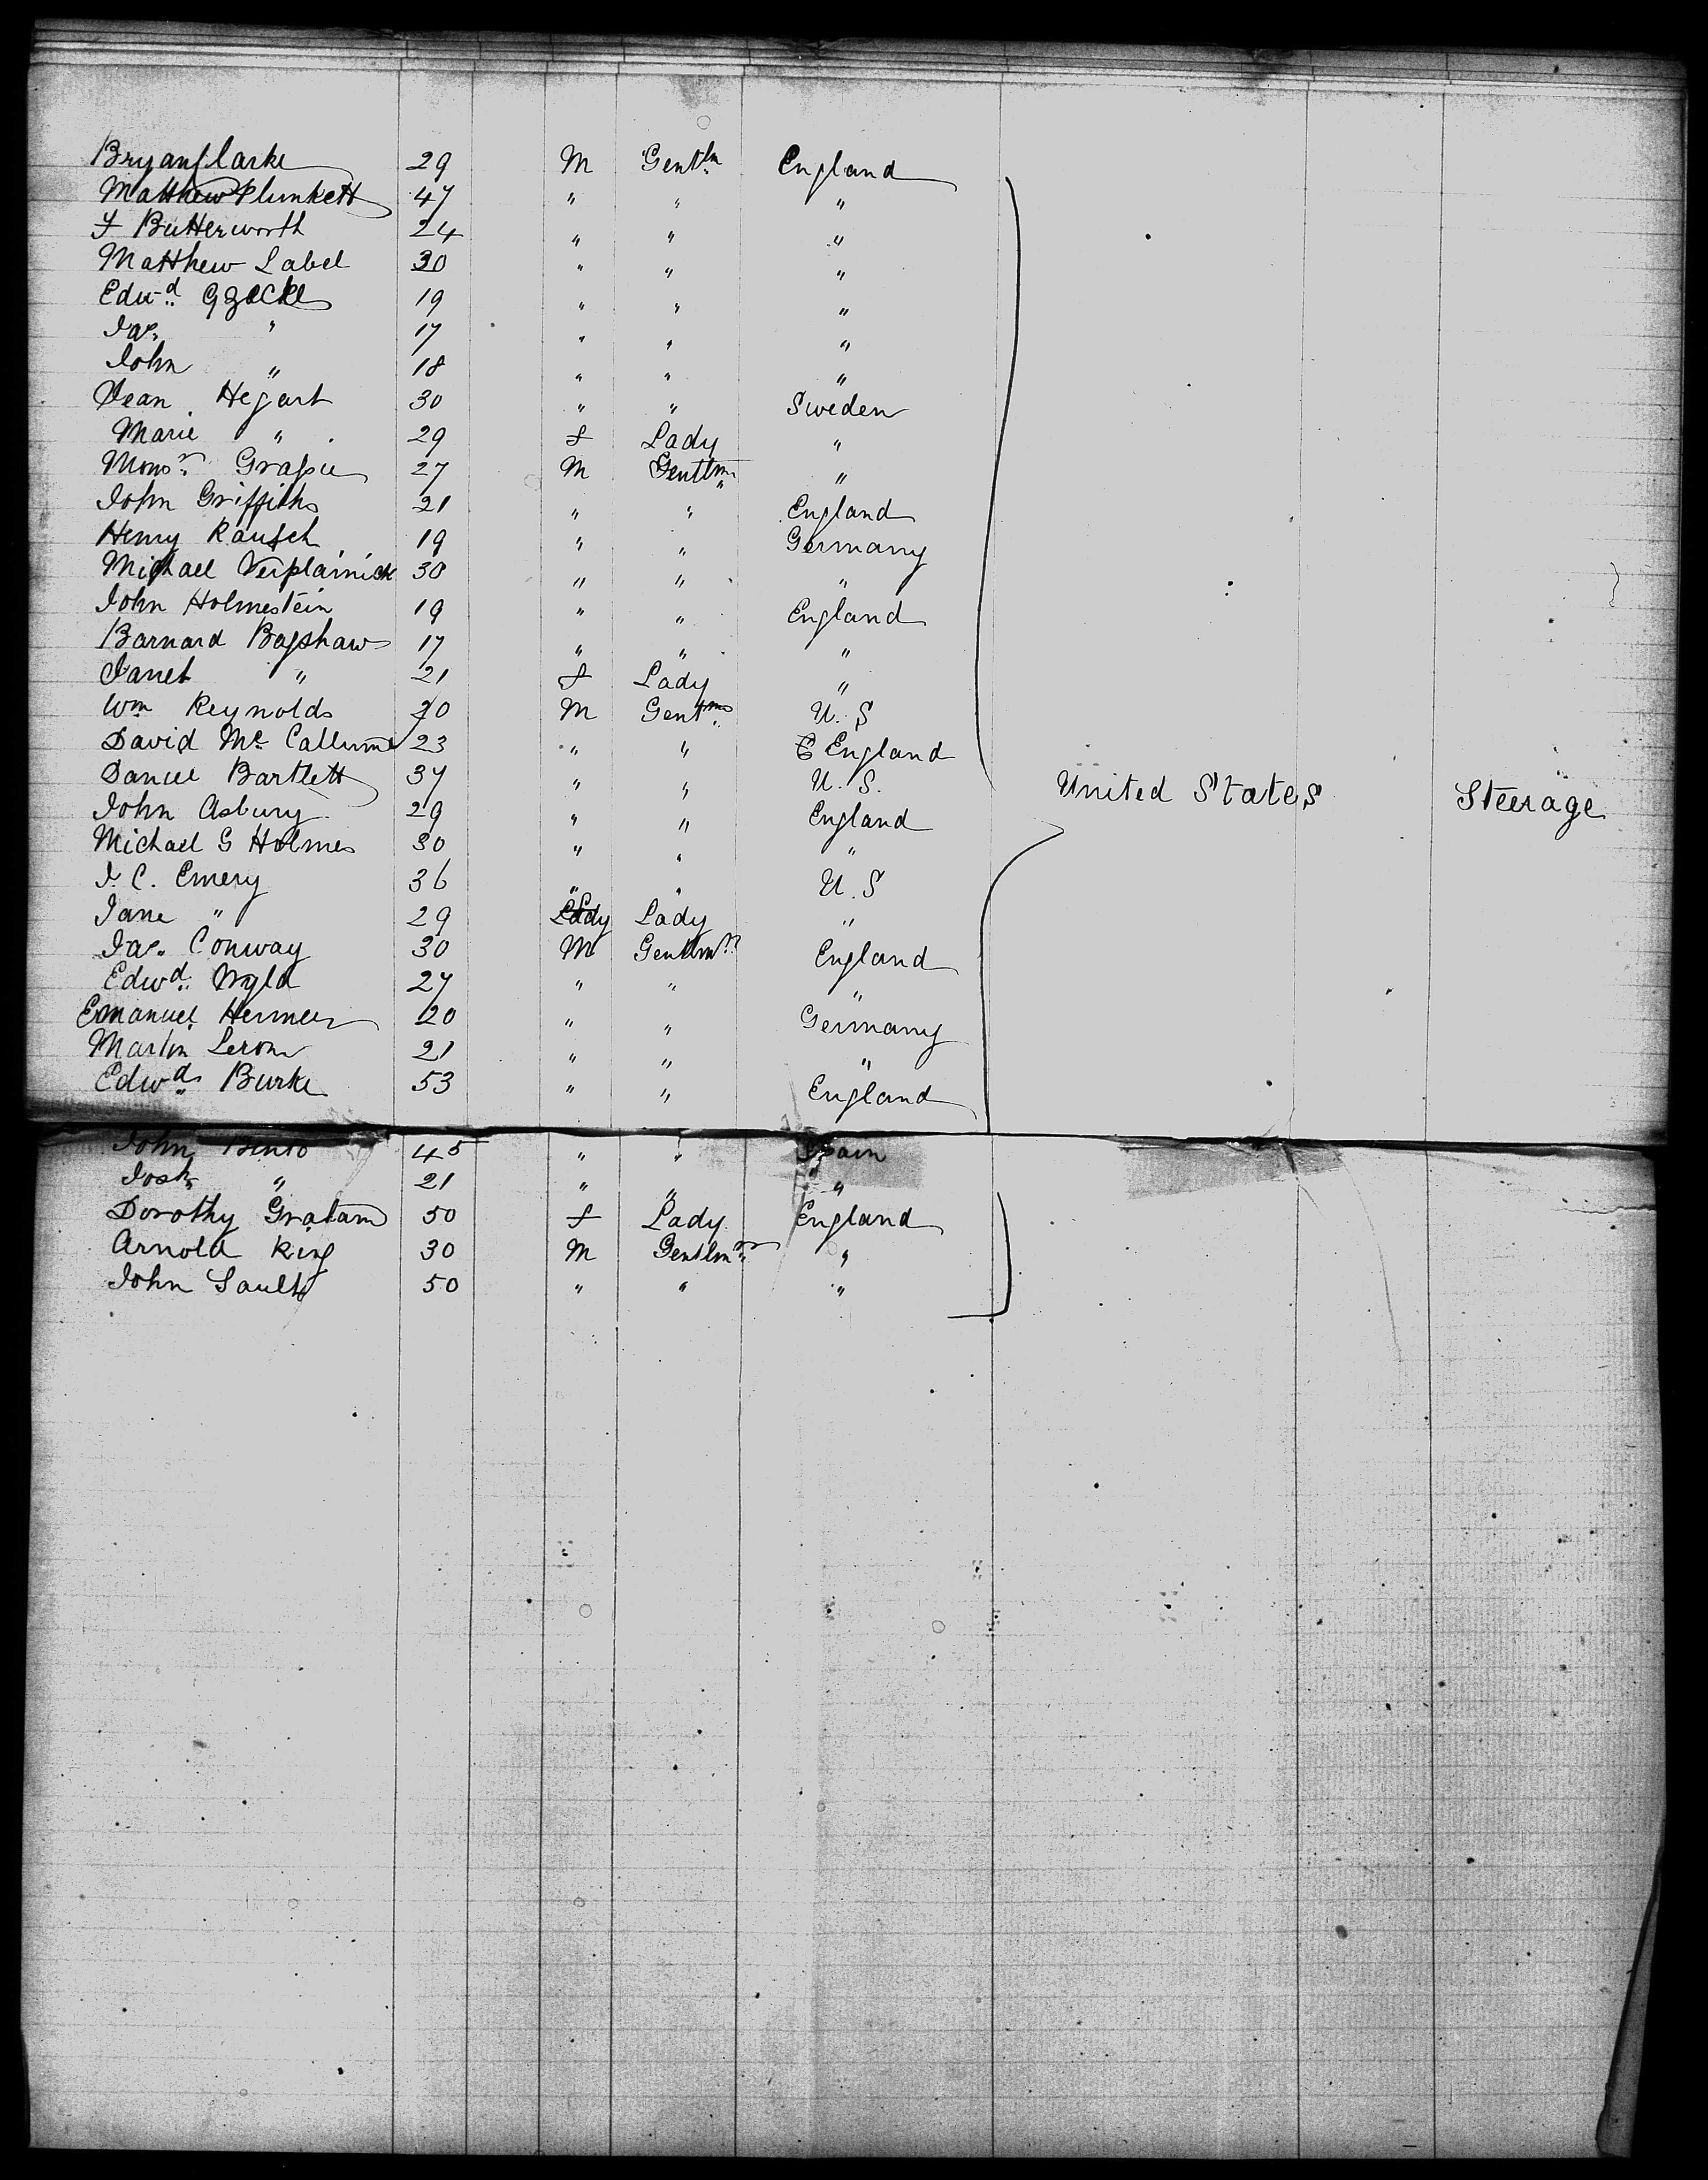 Bryan Clarke 29 M Gentln England
Matthew Plunkett 47 " " "
F Butterworth 24 " " "
Matthew Label 30 " " "
Edwd 19 " " "
Jas. " 17 " " "
John " 18 " " "
Jean Hegart 30 " " Sweden
Marie " 29 f Lady "
Monsr 27 M Gentlm "
John Griffiths 21 " " England
Henry Rausch 19 " " Germany
Michael 30 " " "
John Holmestein 19 " " England
Barnard Bagshaw 17 " " "
Janet " 21 f Lady "
Wm Reynolds 20 M Gentm U. S
David Mc Callum 23 " " England
Daniel Bartlett 37 " " U. S.
United States Steerage
John Asbury 29 " " England
Michael G Holmes 30 " " "
J. C. Emery 36 " " U. S
Jane " 29 Lady "
Jas. Conway 30 M Gentlmn England
Edwd. Wyld 27 " " "
Emanuel 20 " " Germany
Martin 21 " " "
Edwd Burke 53 " " England
John 45 " " Spain
Josh " 21 " " "
Dorothy Graham 50 f Lady England
Arnold King 30 M Gentlmn "
John Sault 50 " " "